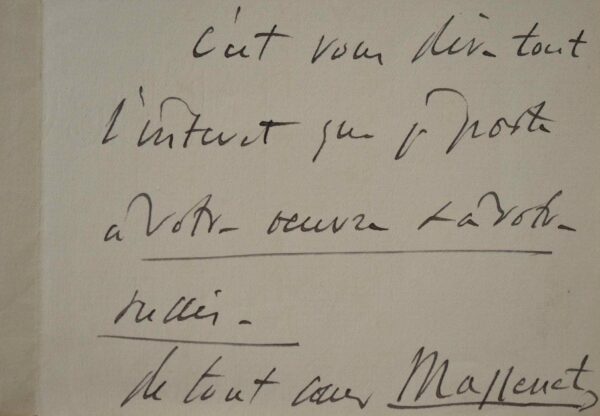 C'est vous dire tout
l'intérêt que j'y porte
à votre oeuvre & à votre
succès.
de tout coeur Massenet